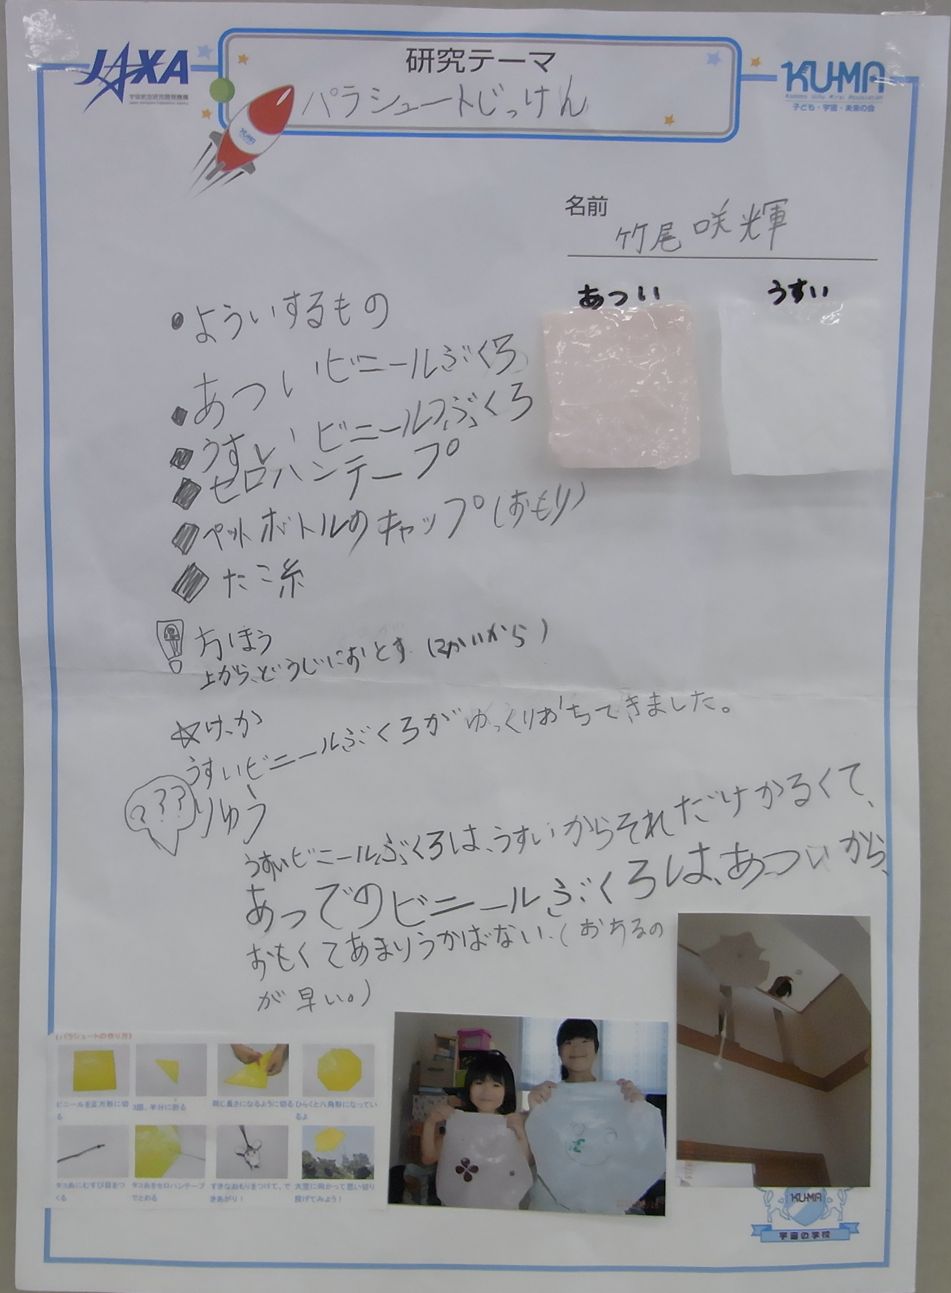 JAXA
宇宙航空研究開発機構
研究テーマ
パラシュートじっけん
KU-MA
子ども・宇宙・未来の会
名前
竹尾咲輝
あつい
うすい
・よういするもの
◆あついビニールぶくろ
◆うすいビニールぶくろ
◆セロハンテープ
◆ペットボトルのキャップ(おもり)
◆たこ糸
方ほう
上から、どうじにおとす (2かいから)
☆けっか
うすいビニールぶくろがゆっくりおちてきました。
???
りゆう
うすいビニールぶくろは、うすいからそれだけかるくて、
あつでのビニールぶくろは、あついから、
おもくてあまりうかばない、(おちるの
が早い。)
《パラシュートの作り方》
ビニールを正方形に切る
3回、半分に折る
同じ長さになるように切る
ひらくと八角形になっているよ
タコ糸にむすび目をつくる
タコ糸をセロハンテープでとめる
すきなおもりをつけて、できあがり!
大空に向かって思い切り投げてみよう!
KU-MA
宇宙の学校